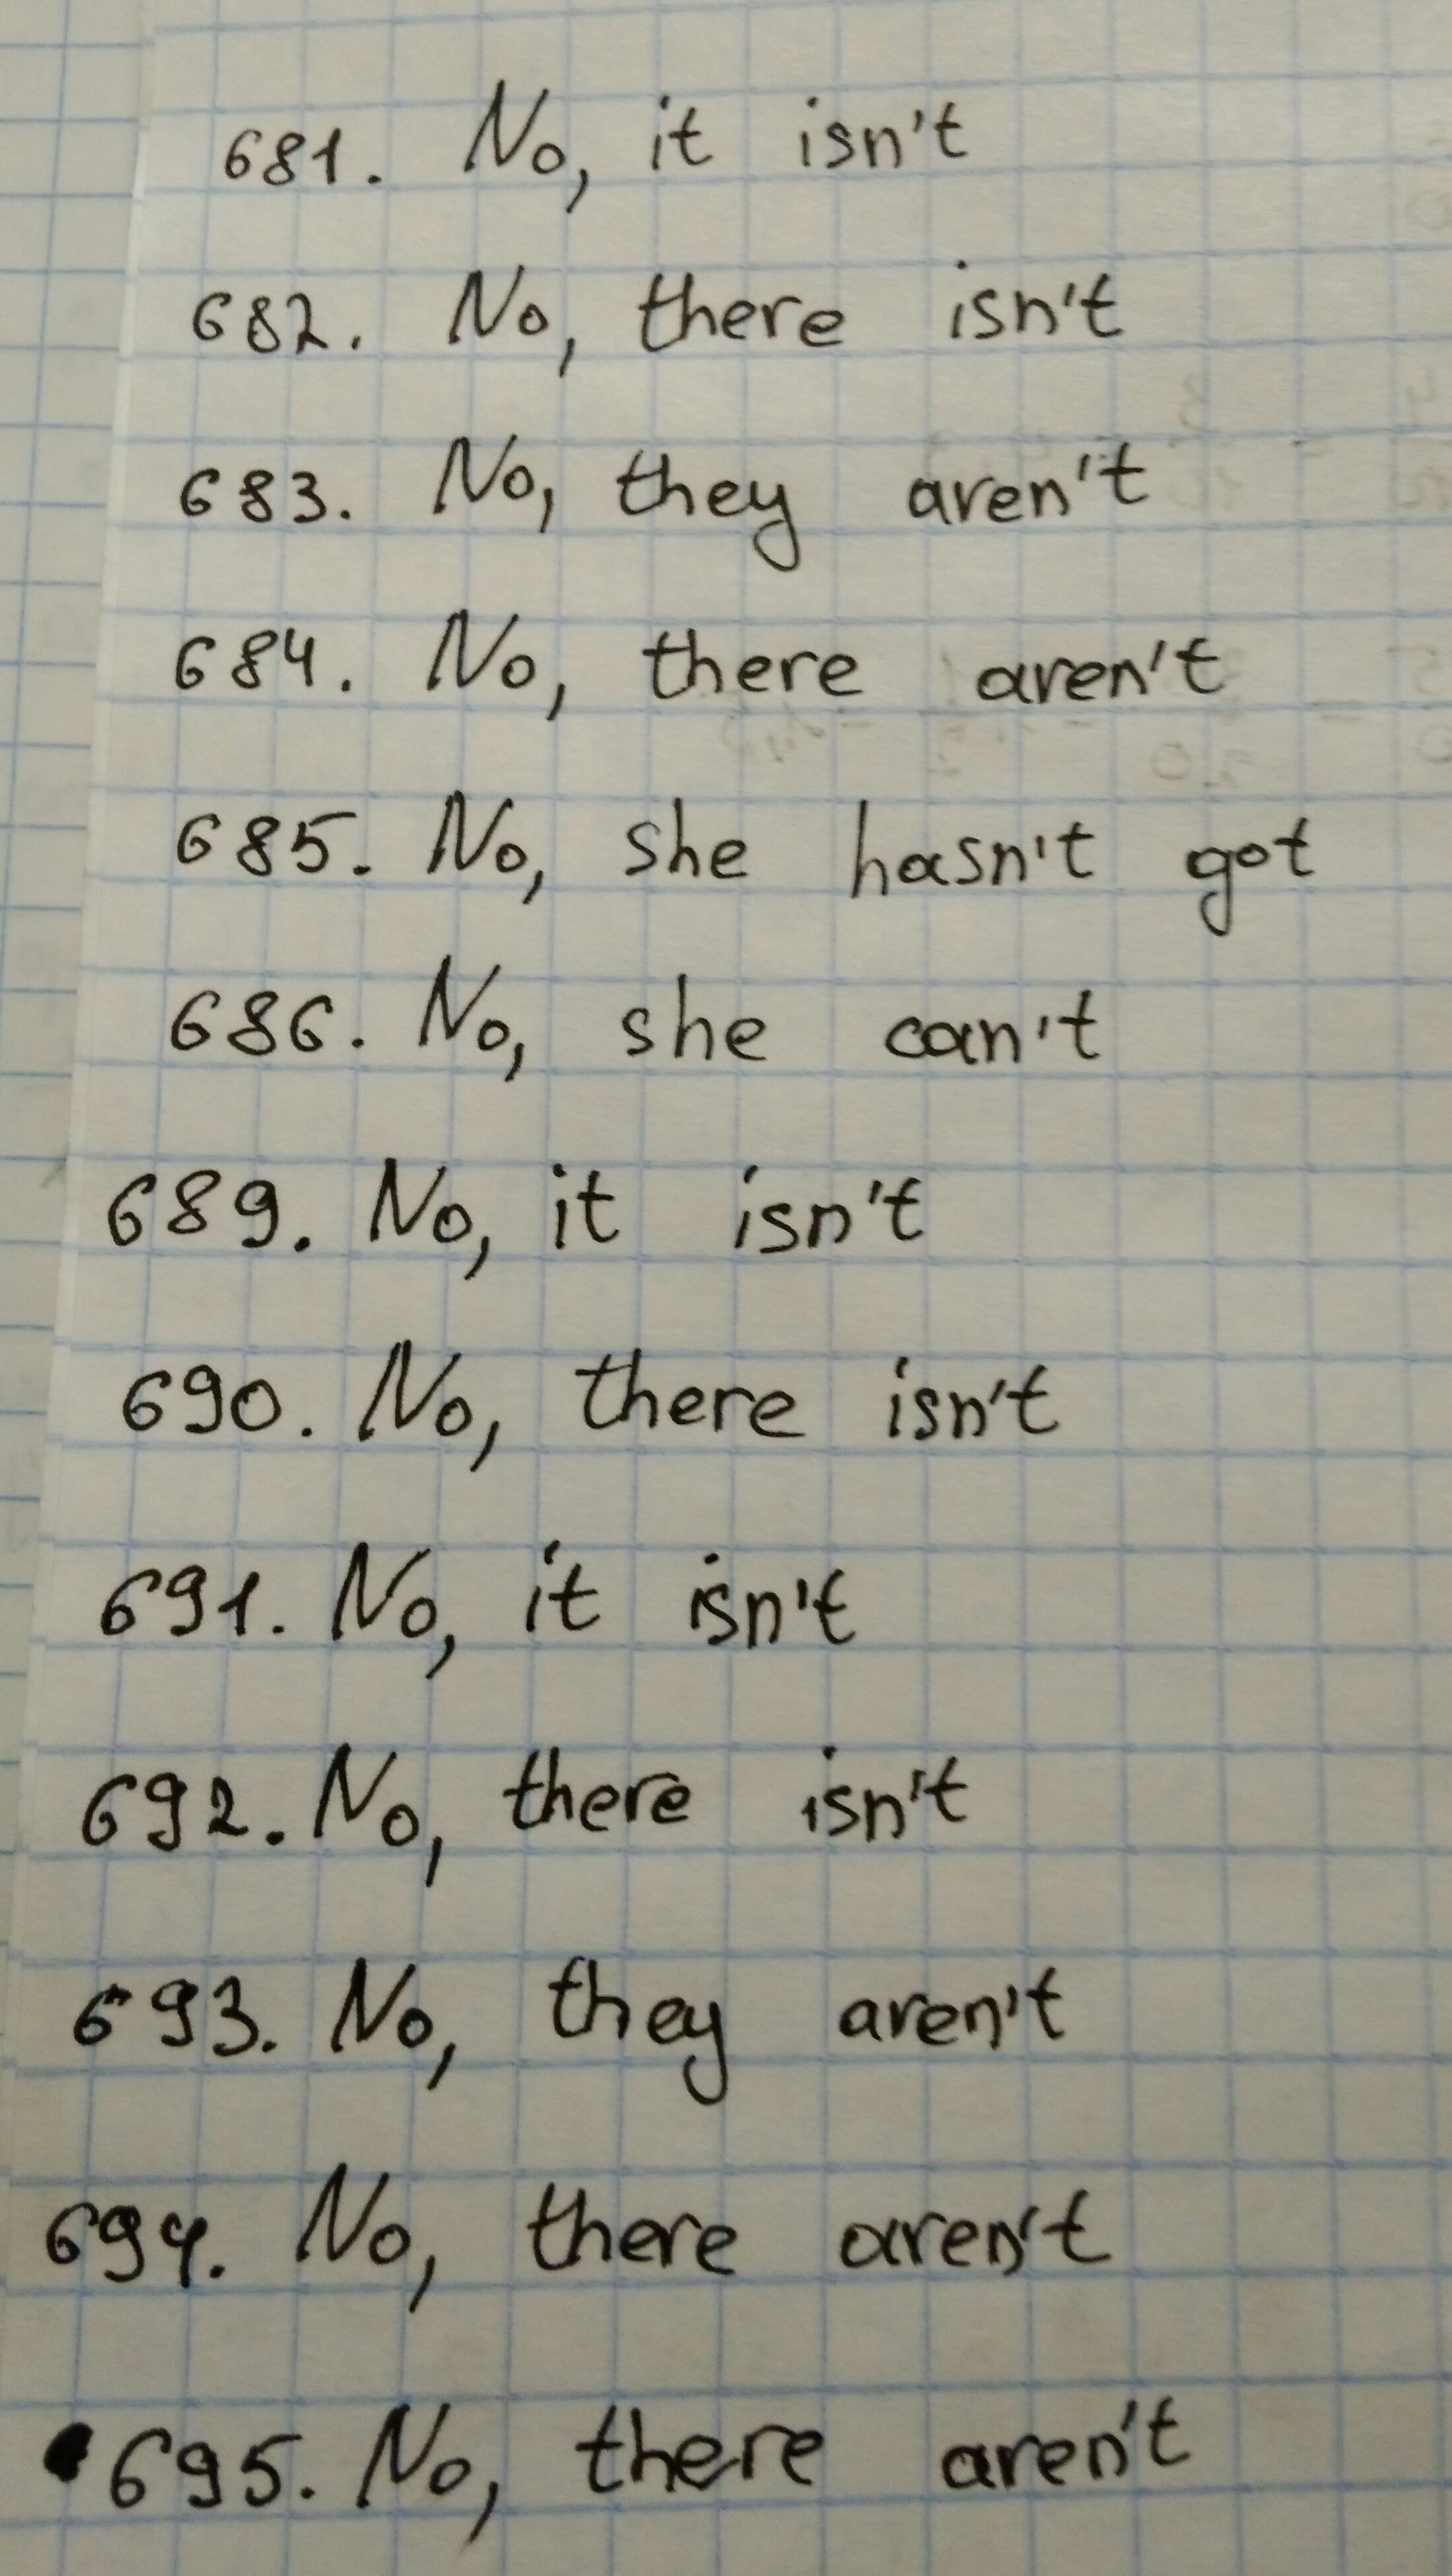 681. No, it isn't
682. No, there isn't
683. No, they aren't
684. No, there aren't
685. No, she hasn't got
686. No, she can't
689. No, it isn't
690. No, there isn't
691. No, it isn't
692. No, there isn't
693. No, they aren't
694. No, there aren't
695. No, there aren't